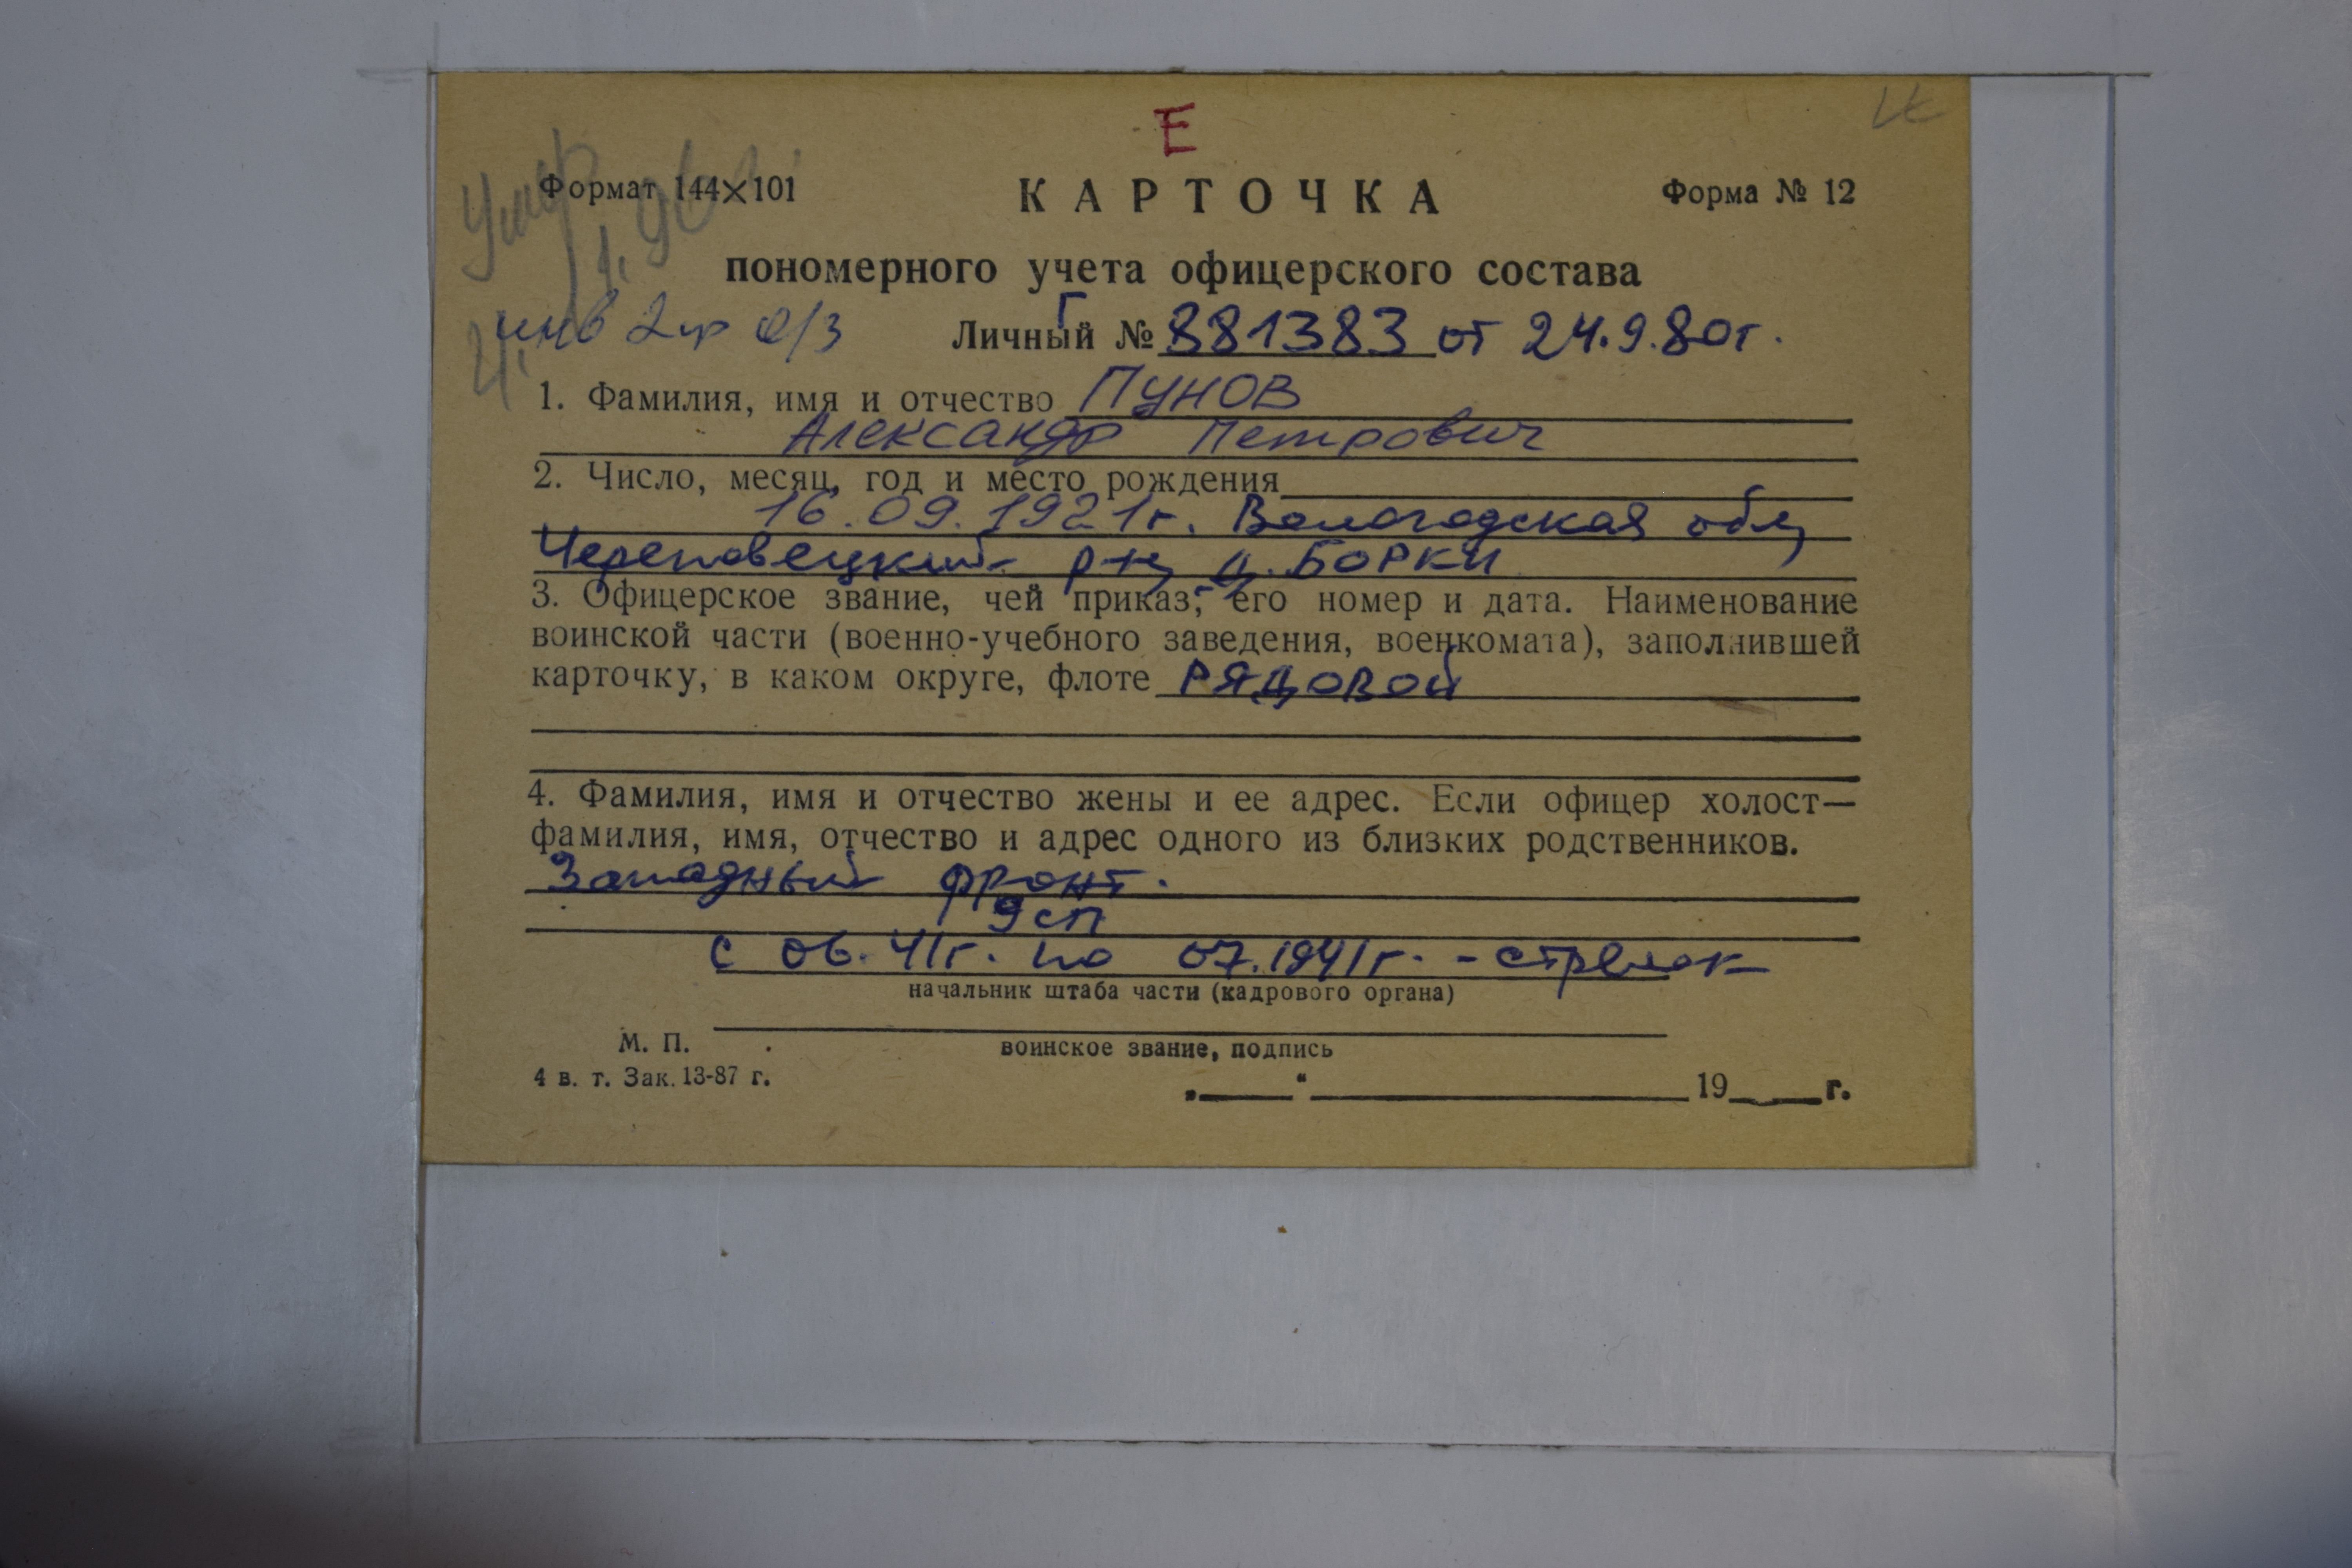 Е
Формат 144×101
КАРТОЧКА
Форма № 12
умер
пономерного учета офицерского состава
инв 2гр о/з
Личный № Г 881383 от 24.9.80г.
1. Фамилия, имя и отчество ПУНОВ
Александр Петрович
2. Число, месяц, год и место рождения
16.09.1921г. Вологодская обл,
Череповецкий р-н, д. БОРКИ
3. Офицерское звание, чей приказ, его номер и дата. Наименование
воинской части (военно-учебного заведения, военкомата), заполнившей
карточку, в каком округе, флоте РЯДОВОЙ
4. Фамилия, имя и отчество жены и ее адрес. Если офицер холост—
фамилия, имя, отчество и адрес одного из близких родственников.
Западный фронт.
9 сп
с 06.41г. по 07.1941г. - стрелок
начальник штаба части (кадрового органа)
М. П.
воинское звание, подпись
4 в. т. Зак. 13-87 г.
„ “ 19 г.